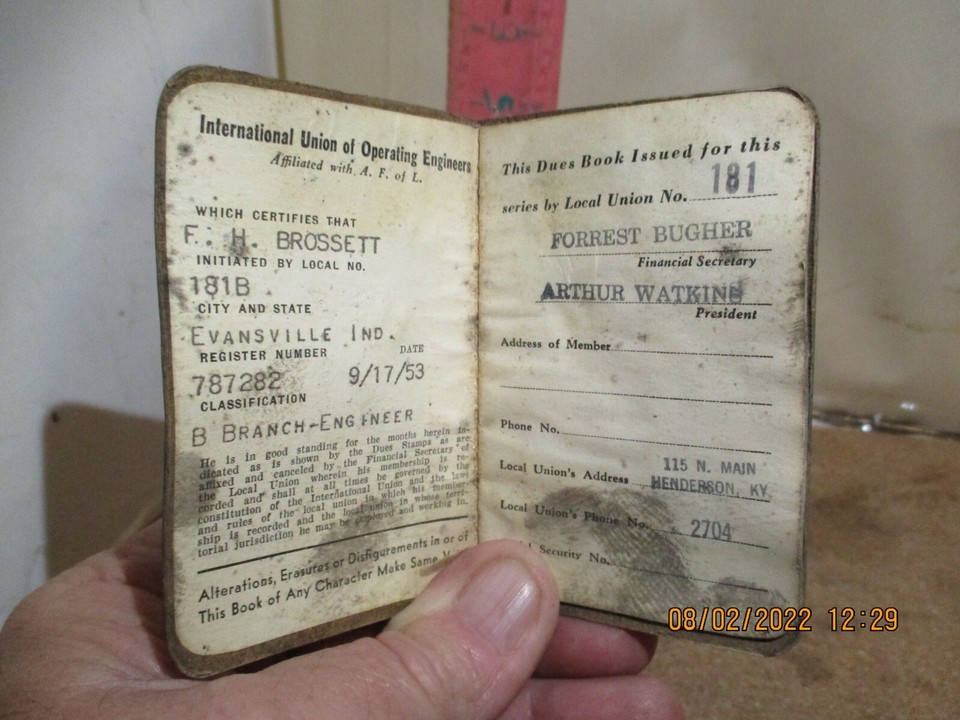 International Union of Operating Engineers
Affiliated with A. F. of L.
WHICH CERTIFIES THAT
F. H. BROSSETT
INITIATED BY LOCAL NO.
181B
CITY AND STATE
EVANSVILLE IND.
REGISTER NUMBER DATE
787282 9/17/53
CLASSIFICATION
B BRANCH-ENGINEER
He is in good standing for the months herein in-
dicated as is shown by the Dues Stamps as are
affixed and canceled by the Financial Secretary of
the Local Union wherein his membership is re-
corded and shall at all times be governed by the
constitution of the International Union and the laws
and rules of the local union in which his member-
ship is recorded and the local union in whose terri-
torial jurisdiction he may be employed and working in.
Alterations, Erasures or Disfigurements in or of
This Book of Any Character Make Same
This Dues Book Issued for this
series by Local Union No. 181
FORREST BUGHER
Financial Secretary
ARTHUR WATKINS
President
Address of Member
Phone No.
Local Union's Address 115 N. MAIN
HENDERSON, KY
Local Union's Phone No. 2704
Security No.
08/02/2022 12:29